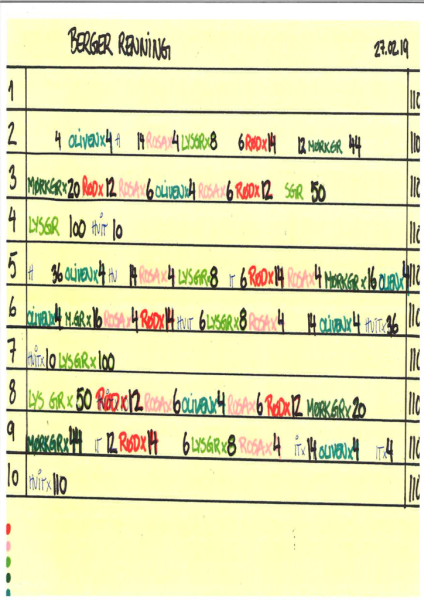 BERGER RENNING 27.02.19
1 110
2 4 OLIVENX4 H 14 ROSAX4 LYSGRX8 6 RØDX14 12 MØRKGR 44 110
3 MØRKGRX20 RØDX12 ROSAX6 OLIVENX4 ROSAX6 RØDX12 SGR 50 110
4 LYSGR 100 HVIT 10 110
5 H 36 OLIVENX4 HV 14 ROSAX4 LYSGRX8 IT 6 RØDX14 ROSAX4 MØRKGRX16 OLIVENX4 110
6 OLIVENX4 M.GRX16 ROSAX4 RØDX14 HVIT 6 LYSGRX8 ROSAX4 14 OLIVENX4 HVITX36 110
7 HVITX10 LYSGRX100 110
8 LYS GRX50 RØDX12 ROSAX6 OLIVENX4 ROSAX6 RØDX12 MØRKGRX20 110
9 MØRKGRX44 IT 12 RØDX14 6 LYSGRX8 ROSAX4 ITX14 OLIVENX4 ITX4 110
10 HVITX110 110